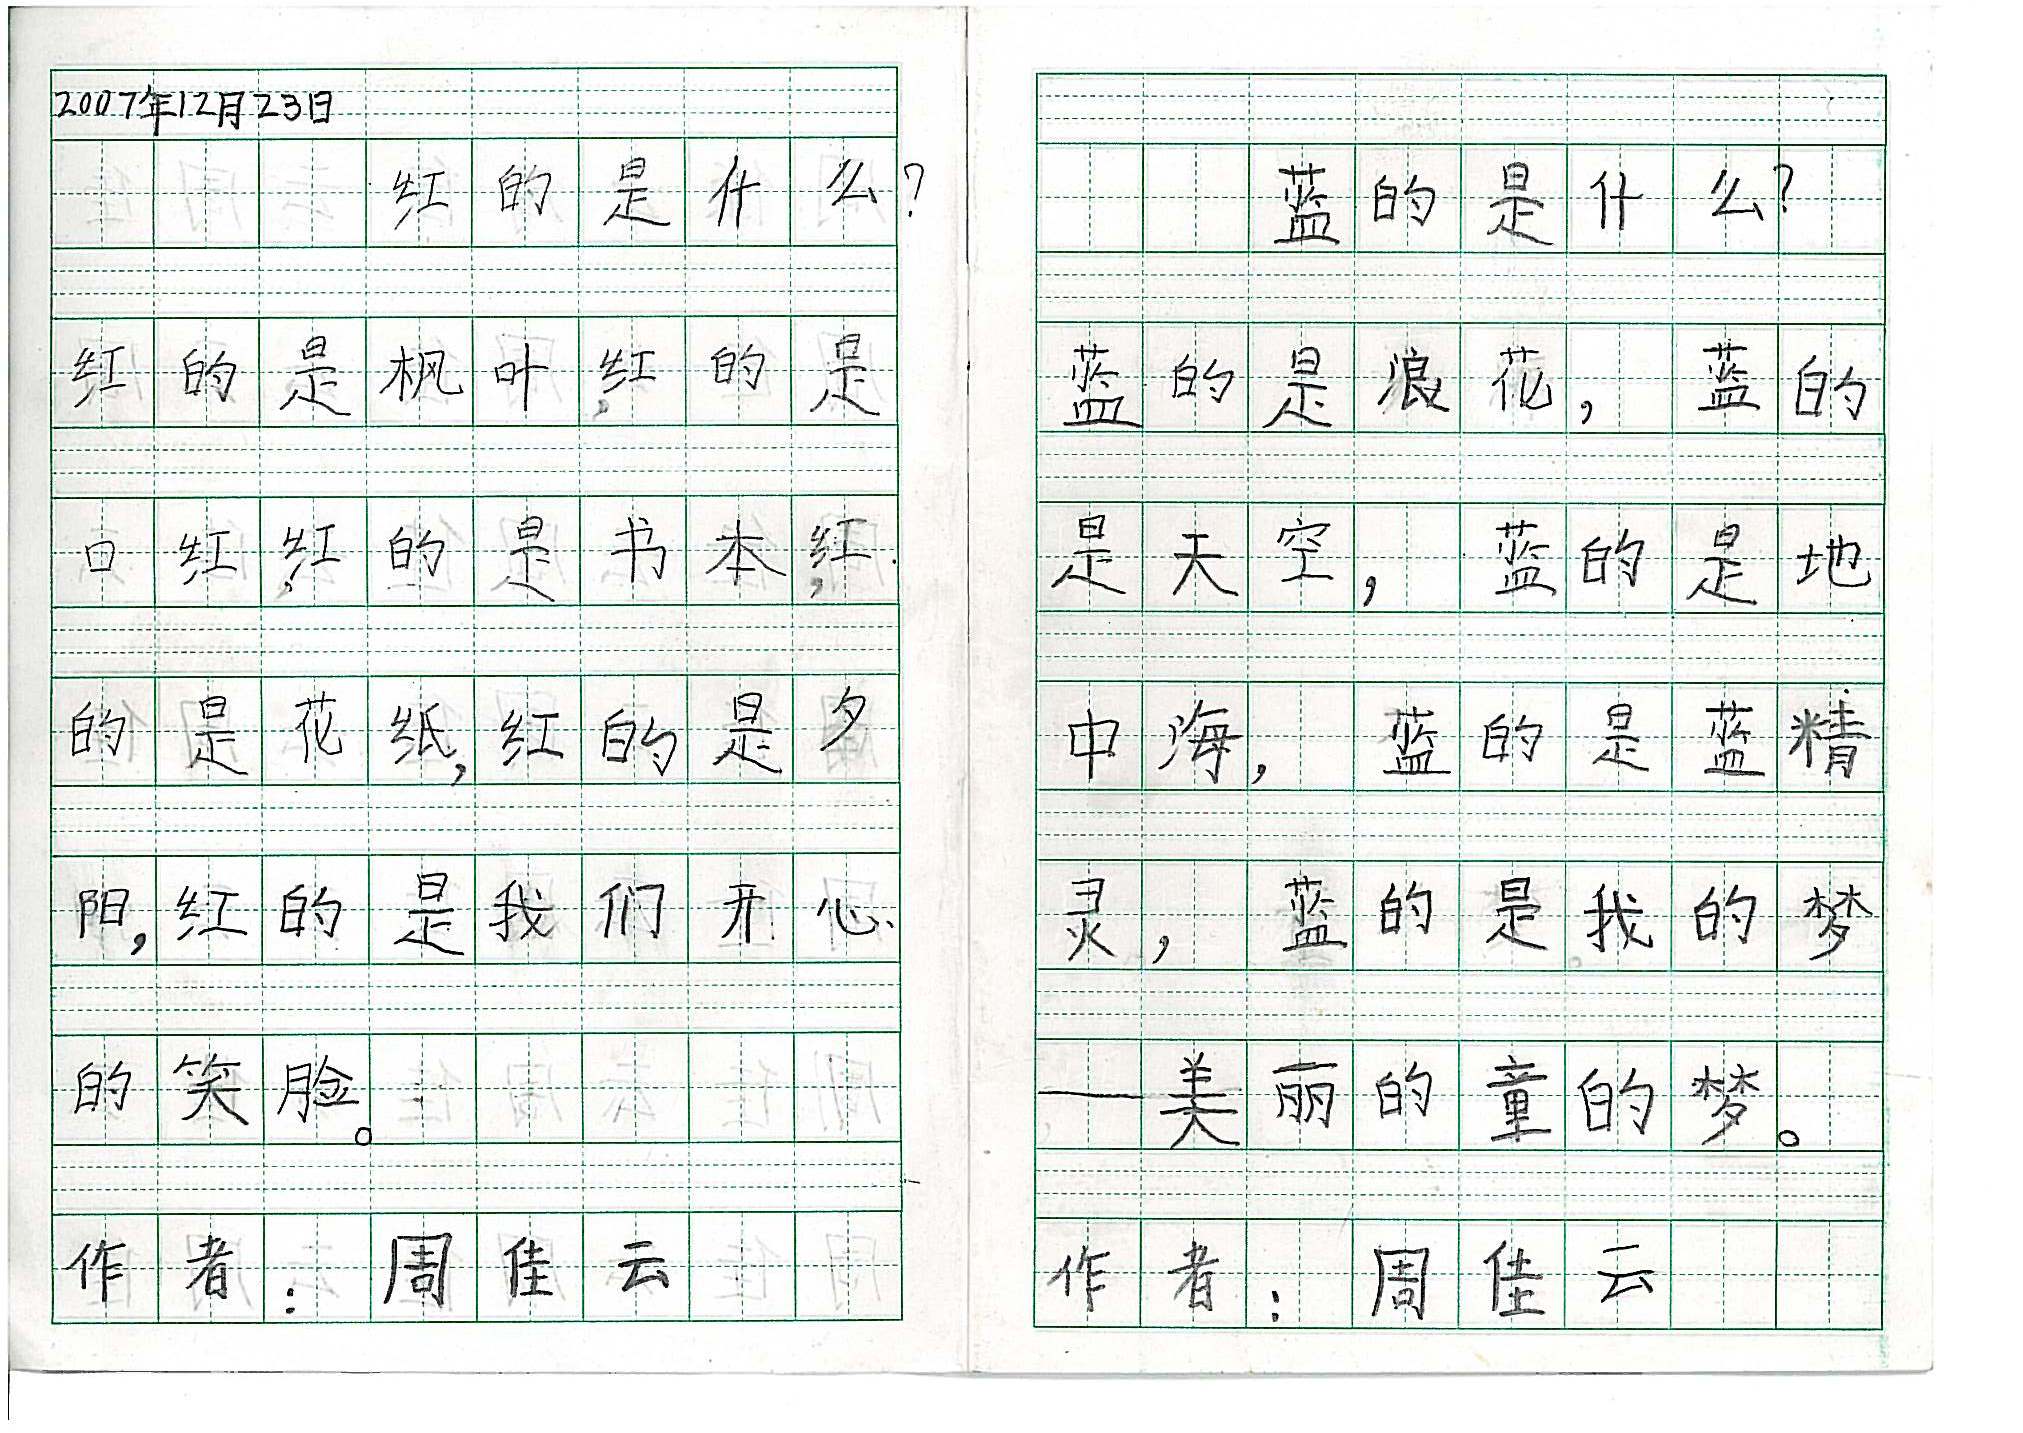 2007年12月23日
红的是什么?
红的是枫叶,红的是
口红,红的是书本,红
的是花纸,红的是夕
阳,红的是我们开心
的笑脸。
作者:周佳云
蓝的是什么?
蓝的是浪花,蓝的
是天空,蓝的是地
中海,蓝的是蓝精
灵,蓝的是我的梦
——美丽的童的梦。
作者:周佳云